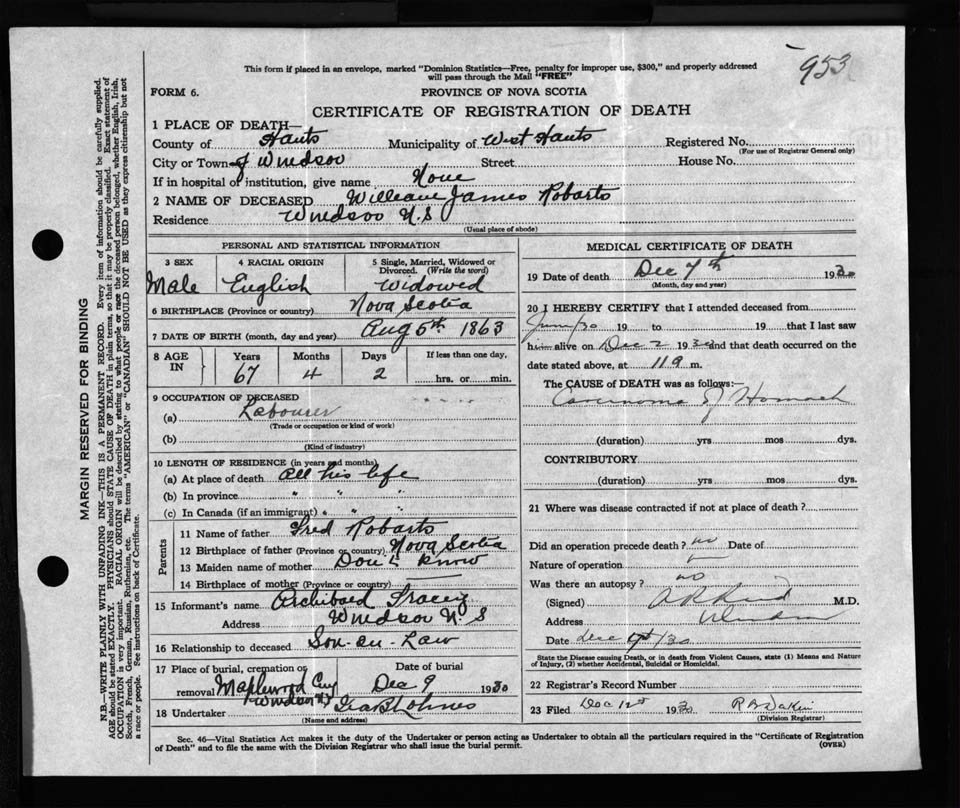 953
This form if placed in an envelope, marked "Dominion Statistics—Free, penalty for improper use, $300," and properly addressed
will pass through the Mail "FREE"
FORM 6.
PROVINCE OF NOVA SCOTIA
CERTIFICATE OF REGISTRATION OF DEATH
1 PLACE OF DEATH—
County of Hants Municipality of West Hants Registered No.
(For use of Registrar General only)
City or Town of Windsor Street House No.
If in hospital of institution, give name None
2 NAME OF DECEASED William James Robarts
Residence Windsor N.S
(Usual place of abode)
PERSONAL AND STATISTICAL INFORMATION
3 SEX 4 RACIAL ORIGIN 5 Single, Married, Widowed or
Divorced. (Write the word)
Male English Widowed
6 BIRTHPLACE (Province or country) Nova Scotia
7 DATE OF BIRTH (month, day and year) Aug 5th 1863
8 AGE IN Years Months Days If less than one day,
67 4 2 hrs. or min.
9 OCCUPATION OF DECEASED
(a) Labourer
(Trade or occupation or kind of work)
(b)
(Kind of industry)
10 LENGTH OF RESIDENCE (in years and months)
(a) At place of death All his life
(b) In province " " "
(c) In Canada (if an immigrant) " " "
Parents
11 Name of father Fred Robarts
12 Birthplace of father (Province or country) Nova Scotia
13 Maiden name of mother Don't know
14 Birthplace of mother (Province or country)
15 Informant's name Archibald Tracey
Address Windsor N.S
16 Relationship to deceased Son-in-Law
17 Place of burial, cremation or Date of burial
removal Maplewood Cmy Dec 9 1930
Windsor NS
18 Undertaker
(Name and address)
MEDICAL CERTIFICATE OF DEATH
19 Date of death Dec 7th 1930
(Month, day and year)
20 I HEREBY CERTIFY that I attended deceased from
June/30 19 to 19 that I last saw
him alive on Dec 2 1930 and that death occurred on the
date stated above, at 11 a m.
The CAUSE of DEATH was as follows:—
Carcinoma of Stomach
(duration) yrs mos dys.
CONTRIBUTORY
(duration) yrs. mos. dys.
21 Where was disease contracted if not at place of death?
Did an operation precede death? no Date of
Nature of operation
Was there an autopsy? no
(Signed) M.D.
Address Windsor
Date Dec 9th/30
State the Disease causing Death, or in death from Violent Causes, state (1) Means and Nature
of Injury, (2) whether Accidental, Suicidal or Homicidal.
22 Registrar's Record Number
23 Filed Dec 12th 1930
(Division Registrar)
Sec. 46—Vital Statistics Act makes it the duty of the Undertaker or person acting as Undertaker to obtain all the particulars required in the "Certificate of Registration
of Death" and to file the same with the Division Registrar who shall issue the burial permit. (OVER)
MARGIN RESERVED FOR BINDING
N.B.—WRITE PLAINLY WITH UNFADING INK—THIS IS A PERMANENT RECORD. Every item of information should be carefully supplied.
AGE should be stated EXACTLY. PHYSICIANS should STATE CAUSE OF DEATH in plain terms, so that it may be properly classified. Exact statement of
OCCUPATION is very important. RACIAL ORIGIN will be described by stating to what people or race the deceased person belonged, whether English, Irish,
Scotch, French, German, Russian, Ruthenian, etc. The terms "AMERICAN" or "CANADIAN" SHOULD NOT BE USED as they express citizenship but not
a race or people. See instructions on back of Certificate.